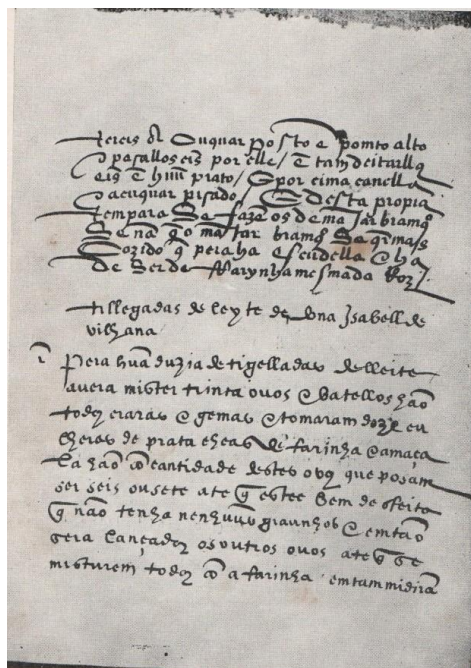 tereis dl Cuquar posto e ponto alto
e pasallos eis por elle / E tam deitarllo
eis E hũ prato / E por cima canella
e acuquar pisado / E desta propia
tempara Se faze os de ma Jar bramq̃
Se nã q̃ o ma Jar bramq̃ Sa q̃r mais
Cozido q̃ pera ha escudella e ha
de Ser de farynha mesmada
tillegadas de leyte de dona Isabell de
vilhana
Pera huã duzia de tigelladas de lleite
avera mister trinta ovos e batellos hão
todos craras e gemas e tomaram doze cu
lheres de prata cheas de farinha e amaça
la hão cõ cantidade destes ovos que posam
ser seis ou sete ate q̃ estee bem desfeito
q̃ não tenha nenhuũs graunhos e emtão
sera lançados os outros ovos ate q̃ se
misturem todos cõ a farinha emtam midirã